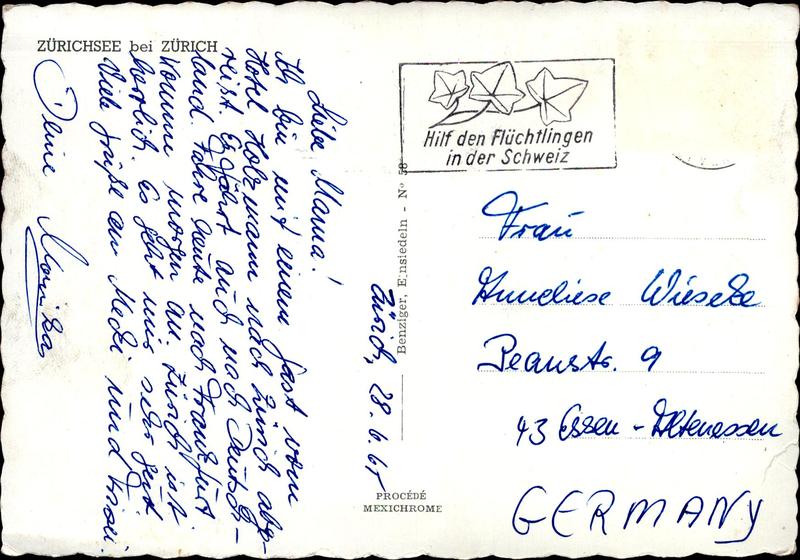 ZÜRICHSEE bei ZÜRICH
Liebe Mama!
Ich bin mit einem Gast vom
Hotel Holzmann nach Zürich abge-
reist. Er fährt auch nach Deutsch-
land. Fahre heute nach Frankfurt
komme morgen an. Zürich ist
herrlich. Es geht mir sehr gut
Viele Grüße an Mecki und
Deine Monika
Zürich, 28.6.65
Benziger, Einsiedeln - Nº 58
PROCÉDÉ
MEXICHROME
Hilf den Flüchtlingen
in der Schweiz
Frau
Anneliese Wieseke
Beaustr. 9
43 Essen - Altenessen
GERMANY